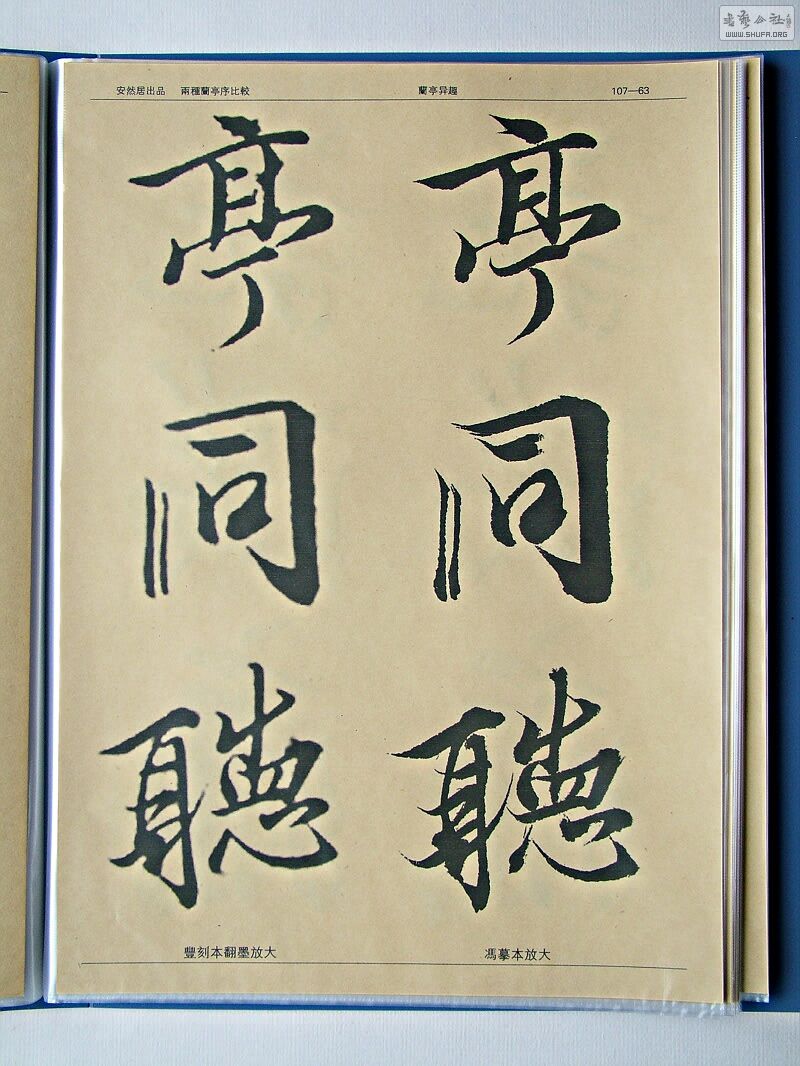 书艺公社
WWW.SHUFA.ORG
安然居出品 兩種蘭亭序比較 蘭亭异趣 107—63
亭 亭
同 同
聽 聽
豐刻本翻墨放大 馮摹本放大